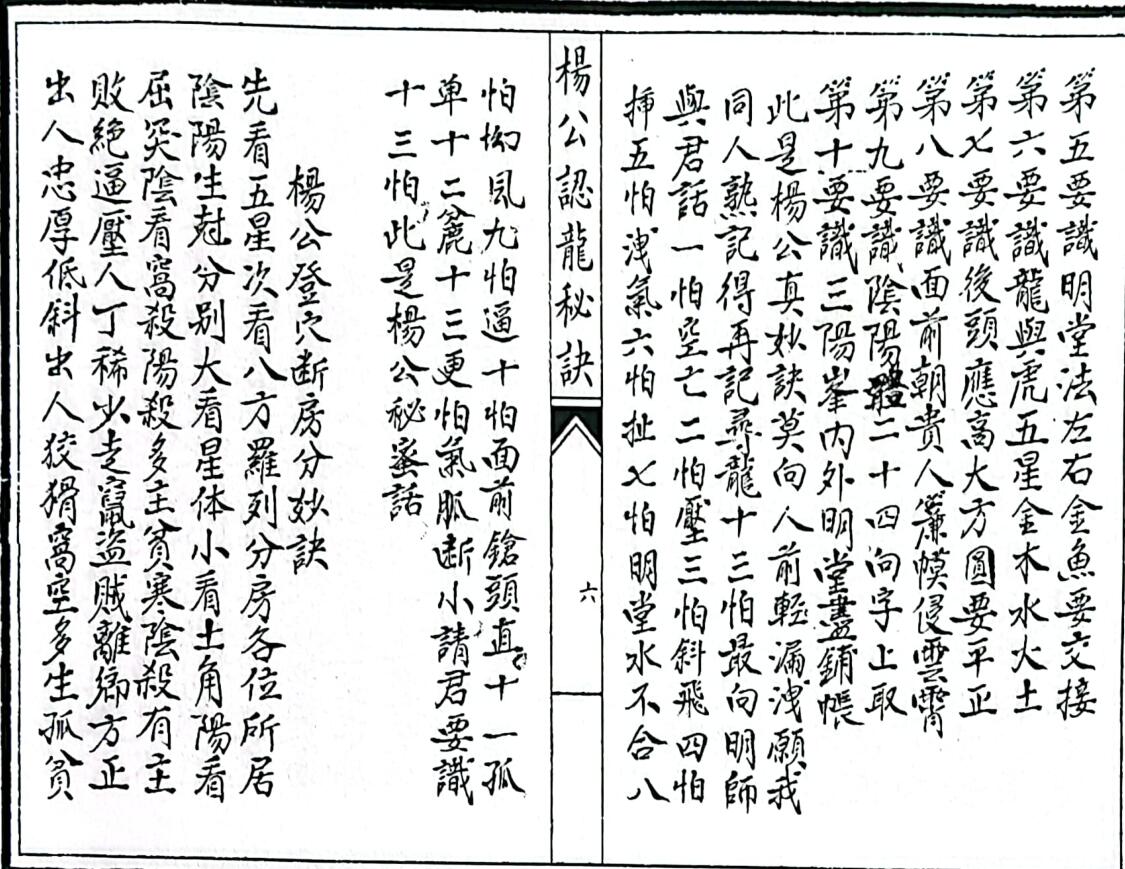 第五要識明堂法左右金魚要交接
第六要識龍與虎五星金木水火土
第七要識後頭應高大方圓要平正
第八要識面前朝貴人簾幙侵雲霄
第九要識陰陽體二十四向字上取
第十要識三陽峯內外明堂蓋鋪帳
此是楊公真妙訣莫向人前輕漏洩願我
同人熟記得再記尋龍十三怕最向明師
與君話一怕空亡二怕壓三怕斜飛四怕
挿五怕洩氣六怕扯七怕明堂水不合八
楊公認龍秘訣
六
怕坳風九怕逼十怕面前鎗頭直十一孤
单十二麄十三更怕氣脈断小請君要識
十三怕此是楊公秘蜜話
楊公登穴断房分妙訣
先看五星次看八方羅列分房各位所居
陰陽生尅分别大看星体小看土角陽看
屈突陰看窩殺陽殺多主貧寒陰殺有主
敗絕逼壓人丁稀少走竄盜賊離鄉方正
出人忠厚低斜出人狡猾窩空多生孤貧